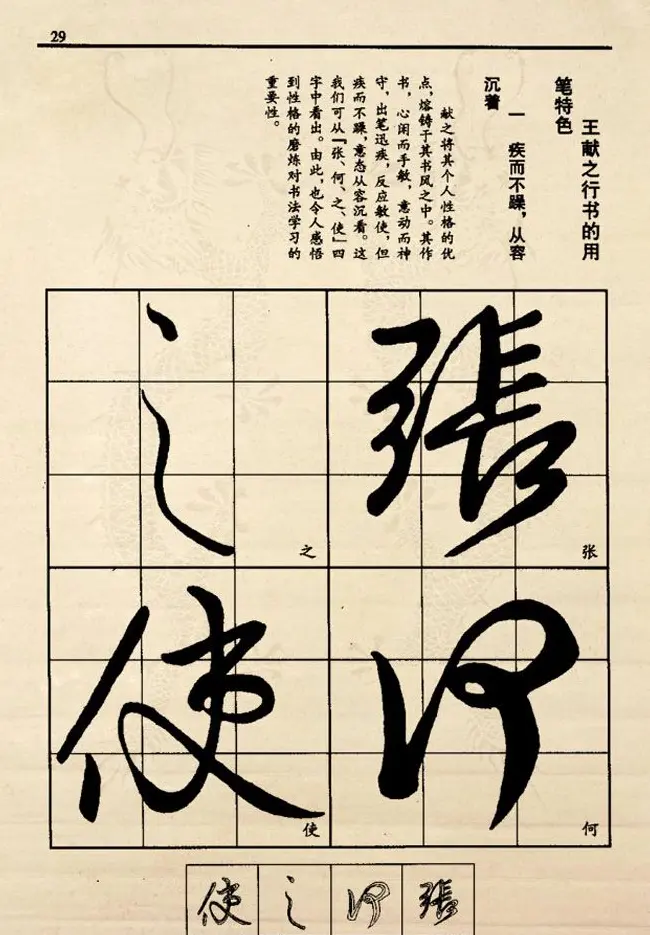 29
王献之行书的用
笔特色
一 疾而不躁，从容
沉着
献之将其个人性格的优
点，熔铸于其书风之中。其作
书，心闲而手敏，意动而神
守，出笔迅疾，反应敏使，但
疾而不躁，意态从容沉看。这
我们可从「张、何、之、使」四
字中看出。由此，也令人感悟
到性格的磨炼对书法学习的
重要性。
張
张
何
何
之
之
使
使
張
何
之
使